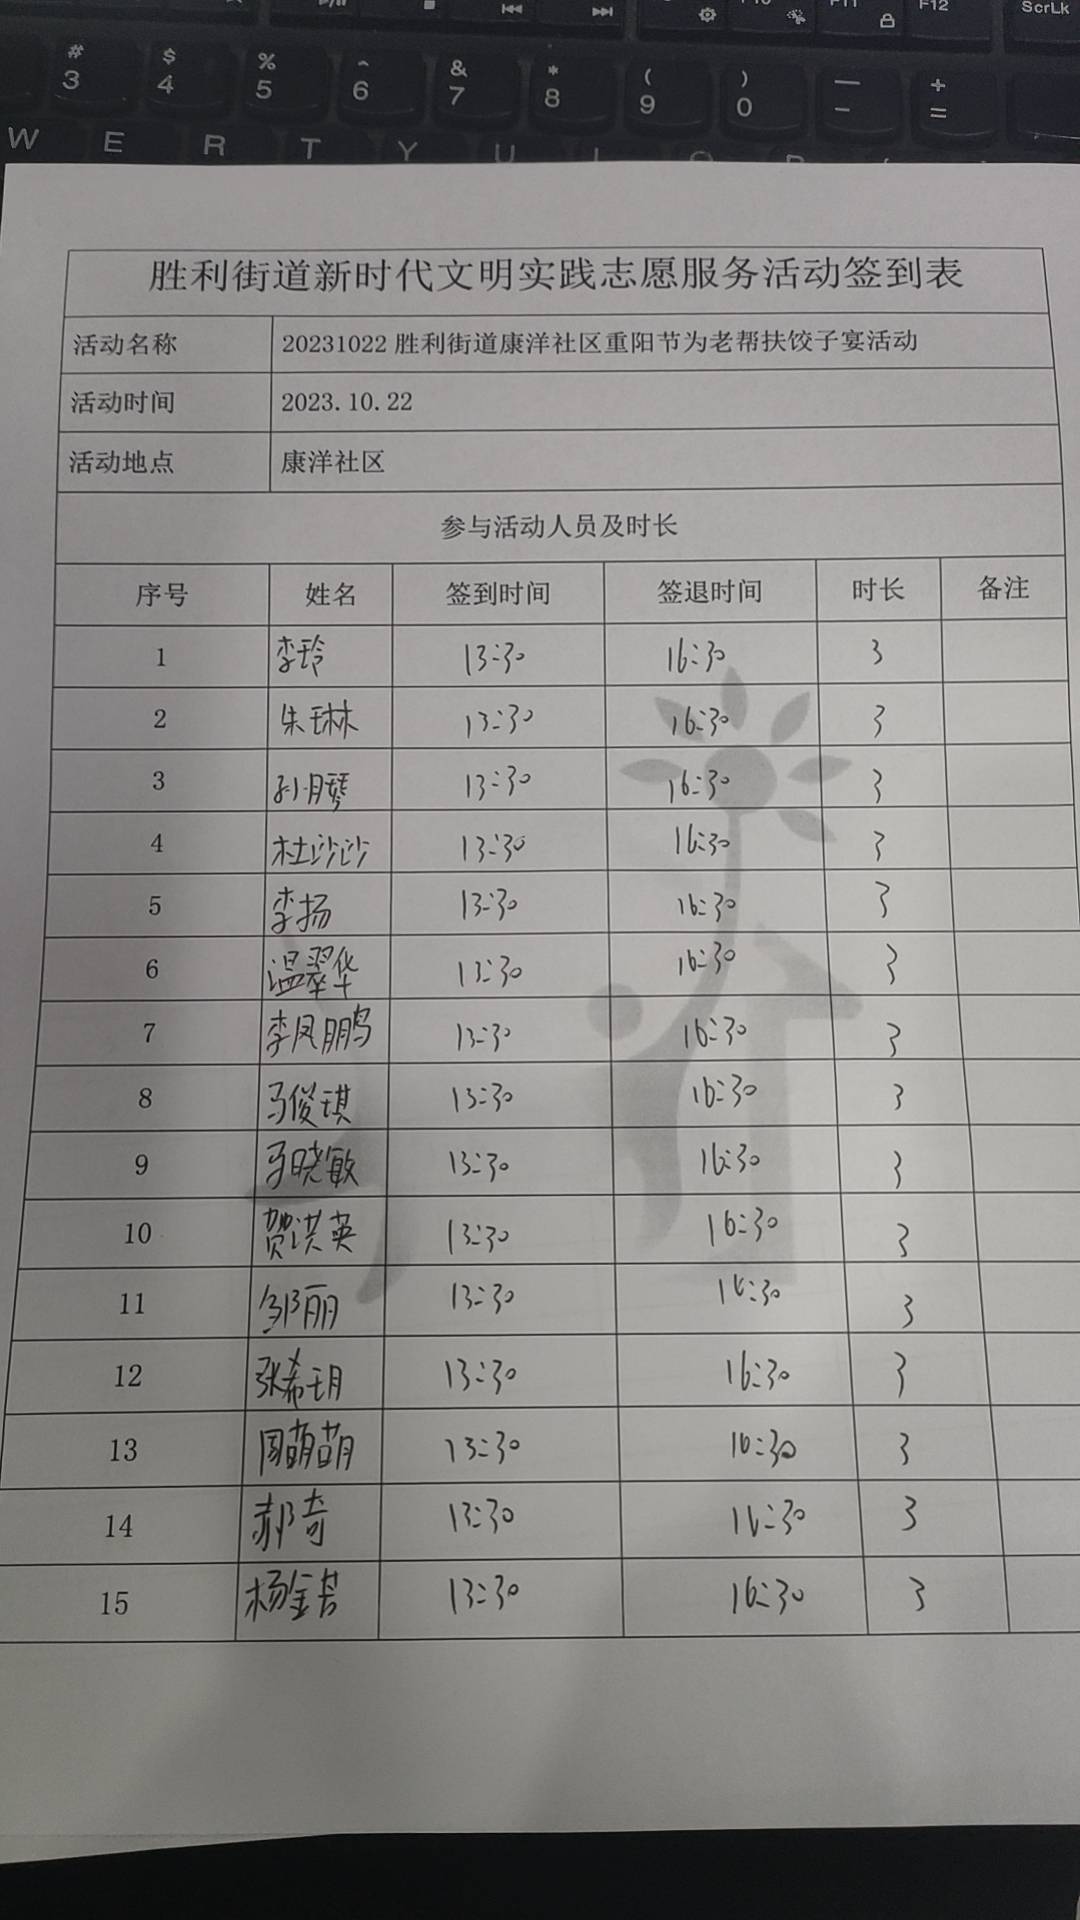 ScrLk
F12
# $ % ^ & * ( ) — +
3 4 5 6 7 8 9 0 - =
W E R T Y U
胜利街道新时代文明实践志愿服务活动签到表
活动名称 20231022 胜利街道康洋社区重阳节为老帮扶饺子宴活动
活动时间 2023.10.22
活动地点 康洋社区
参与活动人员及时长
序号 姓名 签到时间 签退时间 时长 备注
1 李玲 13:30 16:30 3
2 朱琳 13:30 16:30 3
3 孙月琴 13:30 16:30 3
4 杜沙沙 13:30 16:30 3
5 李扬 13:30 16:30 3
6 温翠华 13:30 16:30 3
7 李凤鹏 13:30 16:30 3
8 马俊琪 13:30 16:30 3
9 马晓敏 13:30 16:30 3
10 贺洪英 13:30 16:30 3
11 邹丽 13:30 16:30 3
12 张希玥 13:30 16:30 3
13 周萌萌 13:30 16:30 3
14 郝奇 13:30 16:30 3
15 13:30 16:30 3